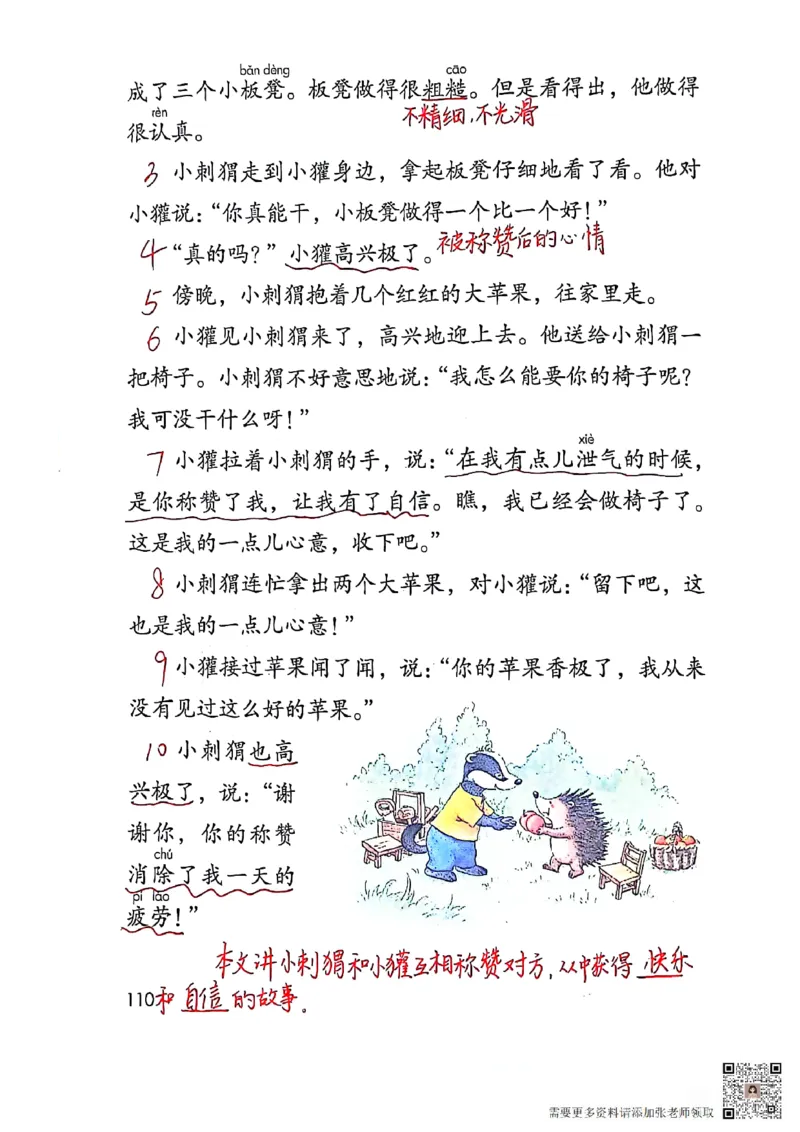 bǎn dèng cāo
成了三个小板凳。板凳做得很粗糙。但是看得出，他做得
不精细，不光滑
rèn
很认真。
3 小刺猬走到小獾身边，拿起板凳仔细地看了看。他对
小獾说：“你真能干，小板凳做得一个比一个好！”
4 “真的吗？”小獾高兴极了。被称赞后的心情
5 傍晚，小刺猬抱着几个红红的大苹果，往家里走。
6 小獾见小刺猬来了，高兴地迎上去。他送给小刺猬一
把椅子。小刺猬不好意思地说：“我怎么能要你的椅子呢？
我可没干什么呀！”
xiè
7 小獾拉着小刺猬的手，说：“在我有点儿泄气的时候，
是你称赞了我，让我有了自信。瞧，我已经会做椅子了。
这是我的一点儿心意，收下吧。”
8 小刺猬连忙拿出两个大苹果，对小獾说：“留下吧，这
也是我的一点儿心意！”
9 小獾接过苹果闻了闻，说：“你的苹果香极了，我从来
没有见过这么好的苹果。”
10 小刺猬也高
兴极了，说：“谢
谢你，你的称赞
chú
消除了我一天的
pí láo
疲劳！”
本文讲小刺猬和小獾互相称赞对方，从中获得 快乐
110和 自信 的故事。
需要更多资料请添加张老师领取